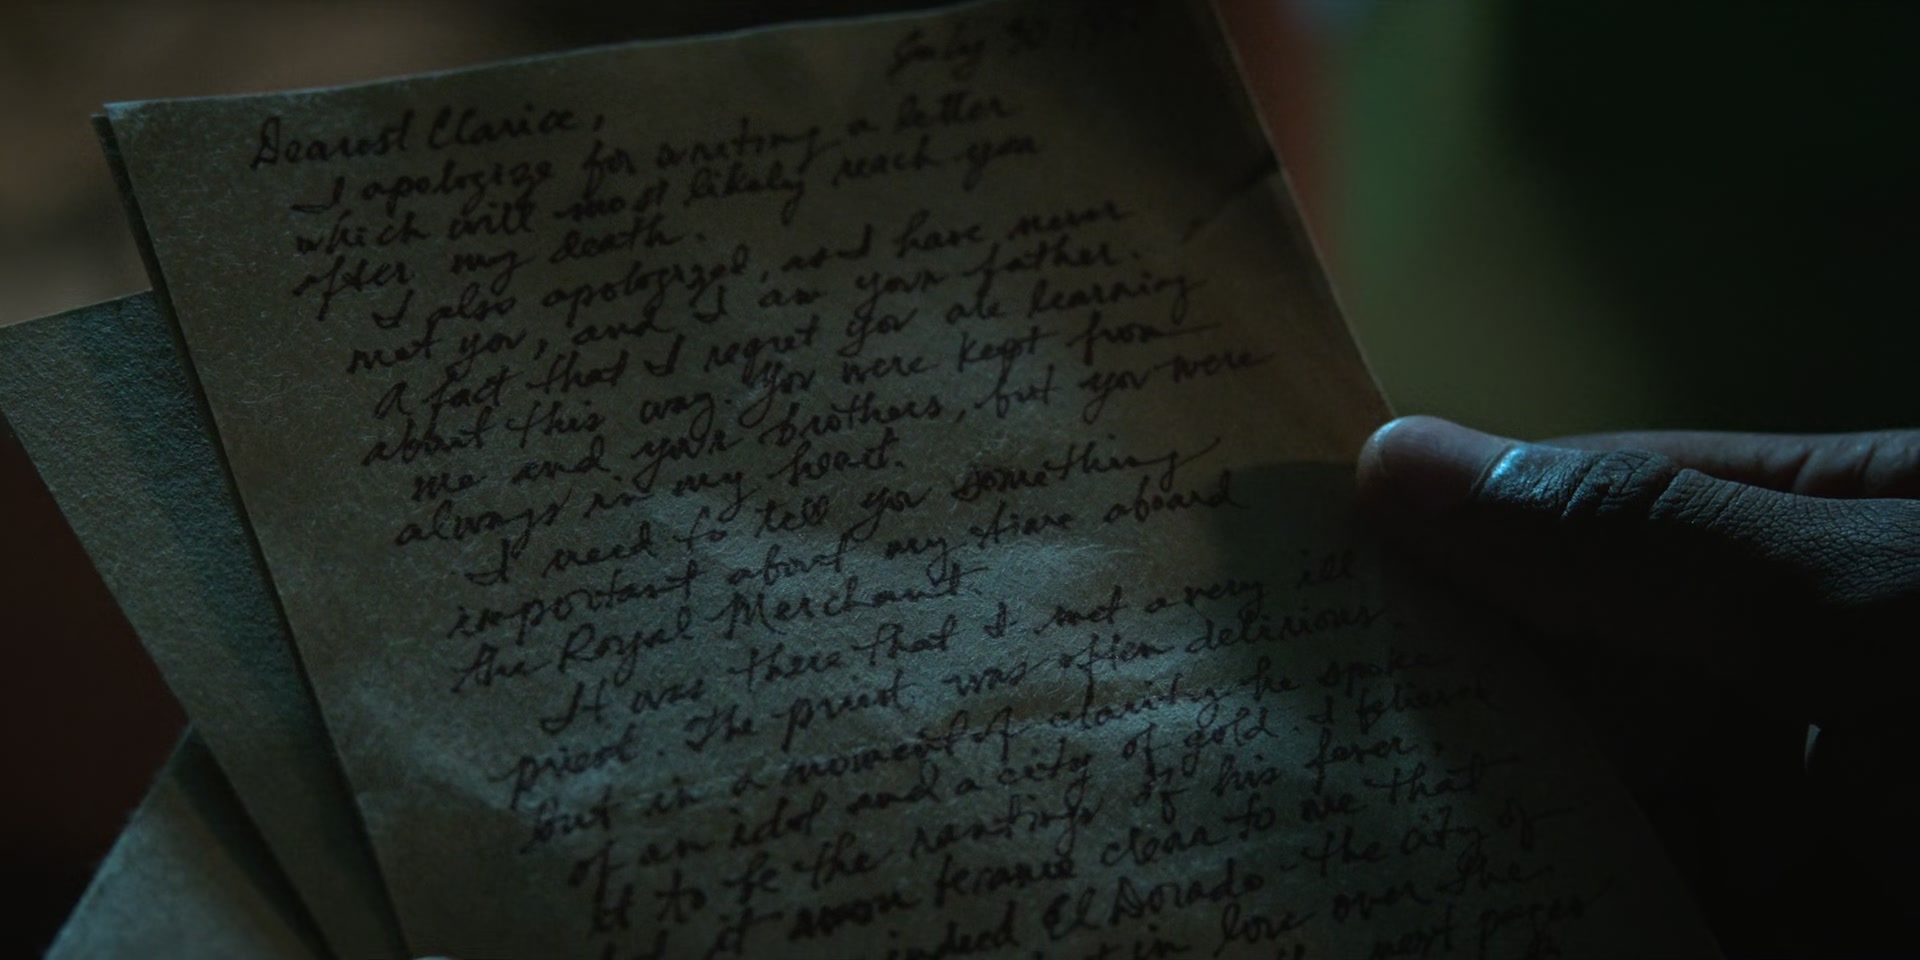 July 30
Dearest Clarice,
I apologize for writing a letter
which will most likely reach you
after my death.
I also apologized, as I have never
met you, and I am your father.
A fact that I regret you are learning
about this way. You were kept from
me and your brothers, but you were
always in my heart.
I need to tell you something
important about my time aboard
the Royal Merchant.
It was there that I met a very ill
priest. The priest was often delirious.
but in a moment of clarity he spoke
of an idol and a city of gold. I believed
it to be the rantings of his fever,
but it soon became clear to me that
indeed El Dorado - the city of
in love over the
next pages